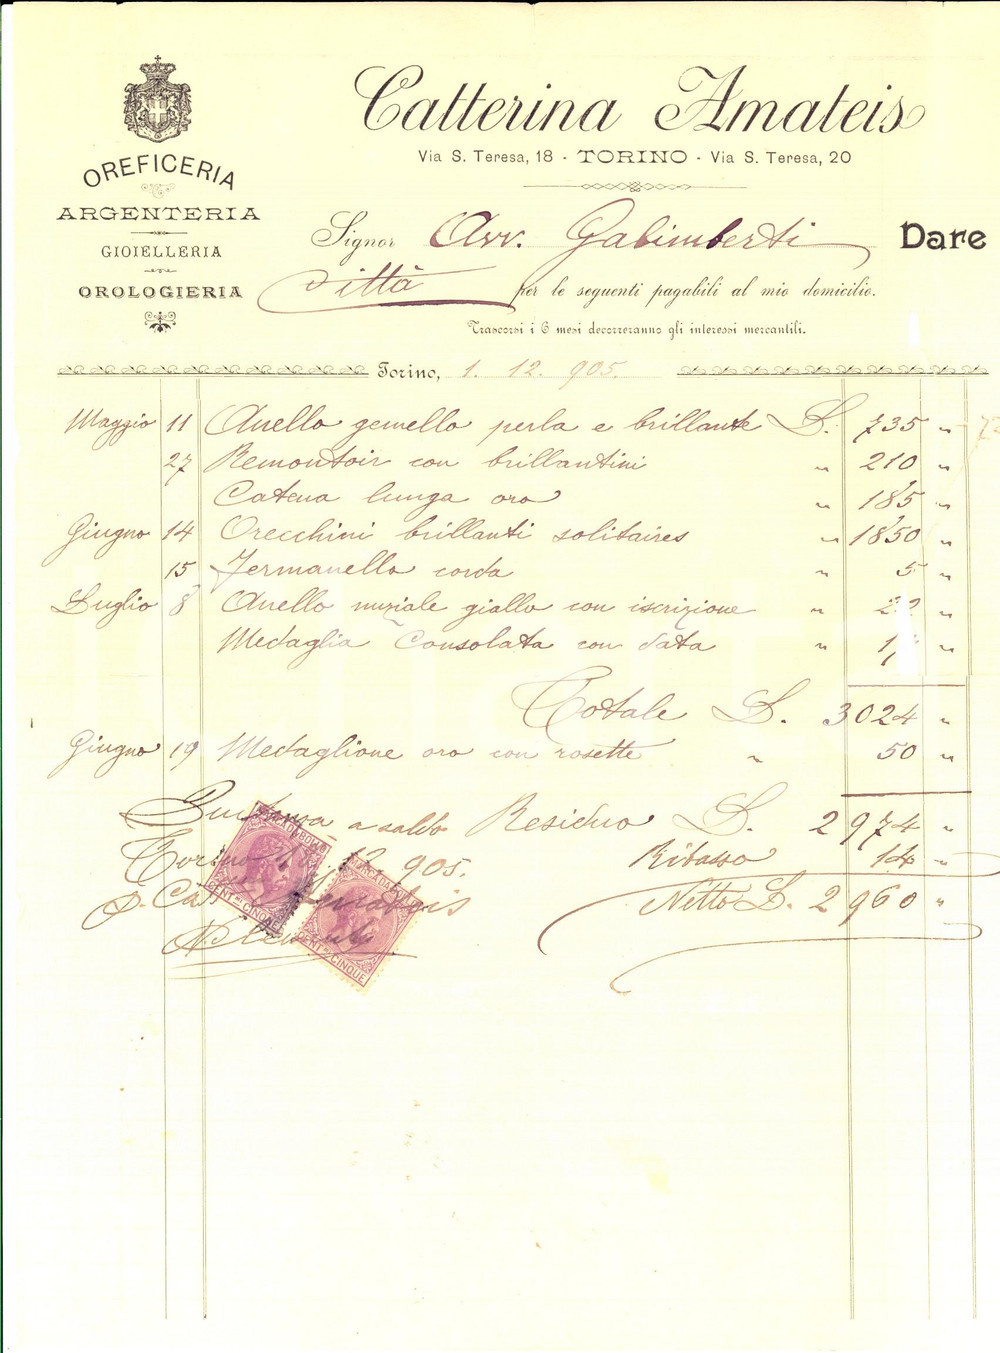 OREFICERIA
ARGENTERIA
GIOIELLERIA
OROLOGIERIA
Catterina Amateis
Via S. Teresa, 18 - TORINO - Via S. Teresa, 20
Signor Avv. Galimberti Dare
Città per le seguenti pagabili al mio domicilio.
Trascorsi i 6 mesi decorreranno gli interessi mercantili.
Torino, 1. 12. 905.
Maggio 11 Anello gemello perla e brillante L. 735 "
27 Remontoir con brillantini " 210 "
Catena lunga oro " 185 "
Giugno 14 Orecchini brillanti solitaires " 1850 "
15 Fermanello corda " 5 "
Luglio 8 Anello nuziale giallo con iscrizione "
Medaglia Consolata con data "
Totale L. 3024 "
Giugno 19 Medaglione oro con rosette " 50 "
a saldo Residuo L. 2974 "
Torino 12 905. Ribasso 14 "
p. Amateis Netto L. 2960 "
CENT. CINQUE
CENT. CINQUE